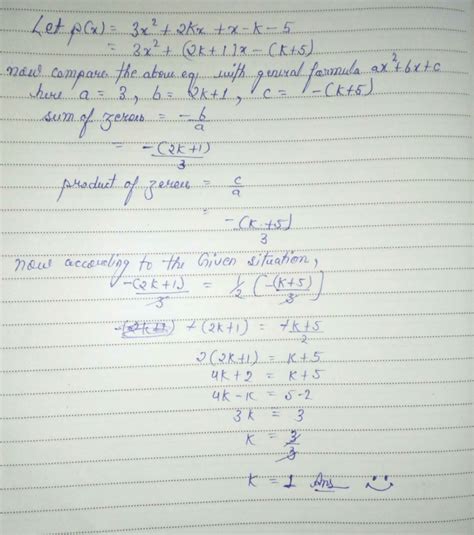 Let p(x) = 3x² + 2kx + x - k - 5
= 3x² + (2k+1)x - (k+5)
now compare the above eq with general formula ax²+bx+c
here a = 3, b = 2k+1, c = -(k+5)
sum of zeroes = -b/a
= -(2k+1)/3
product of zeroes = c/a
= -(k+5)/3
Now according to the Given situation,
-(2k+1)/3 = 1/2 [-(k+5)/3]
+(2k+1) = +k+5/2
2(2k+1) = k+5
4k+2 = k+5
4k-k = 5-2
3k = 3
k = 3/3
k = 1 Ans